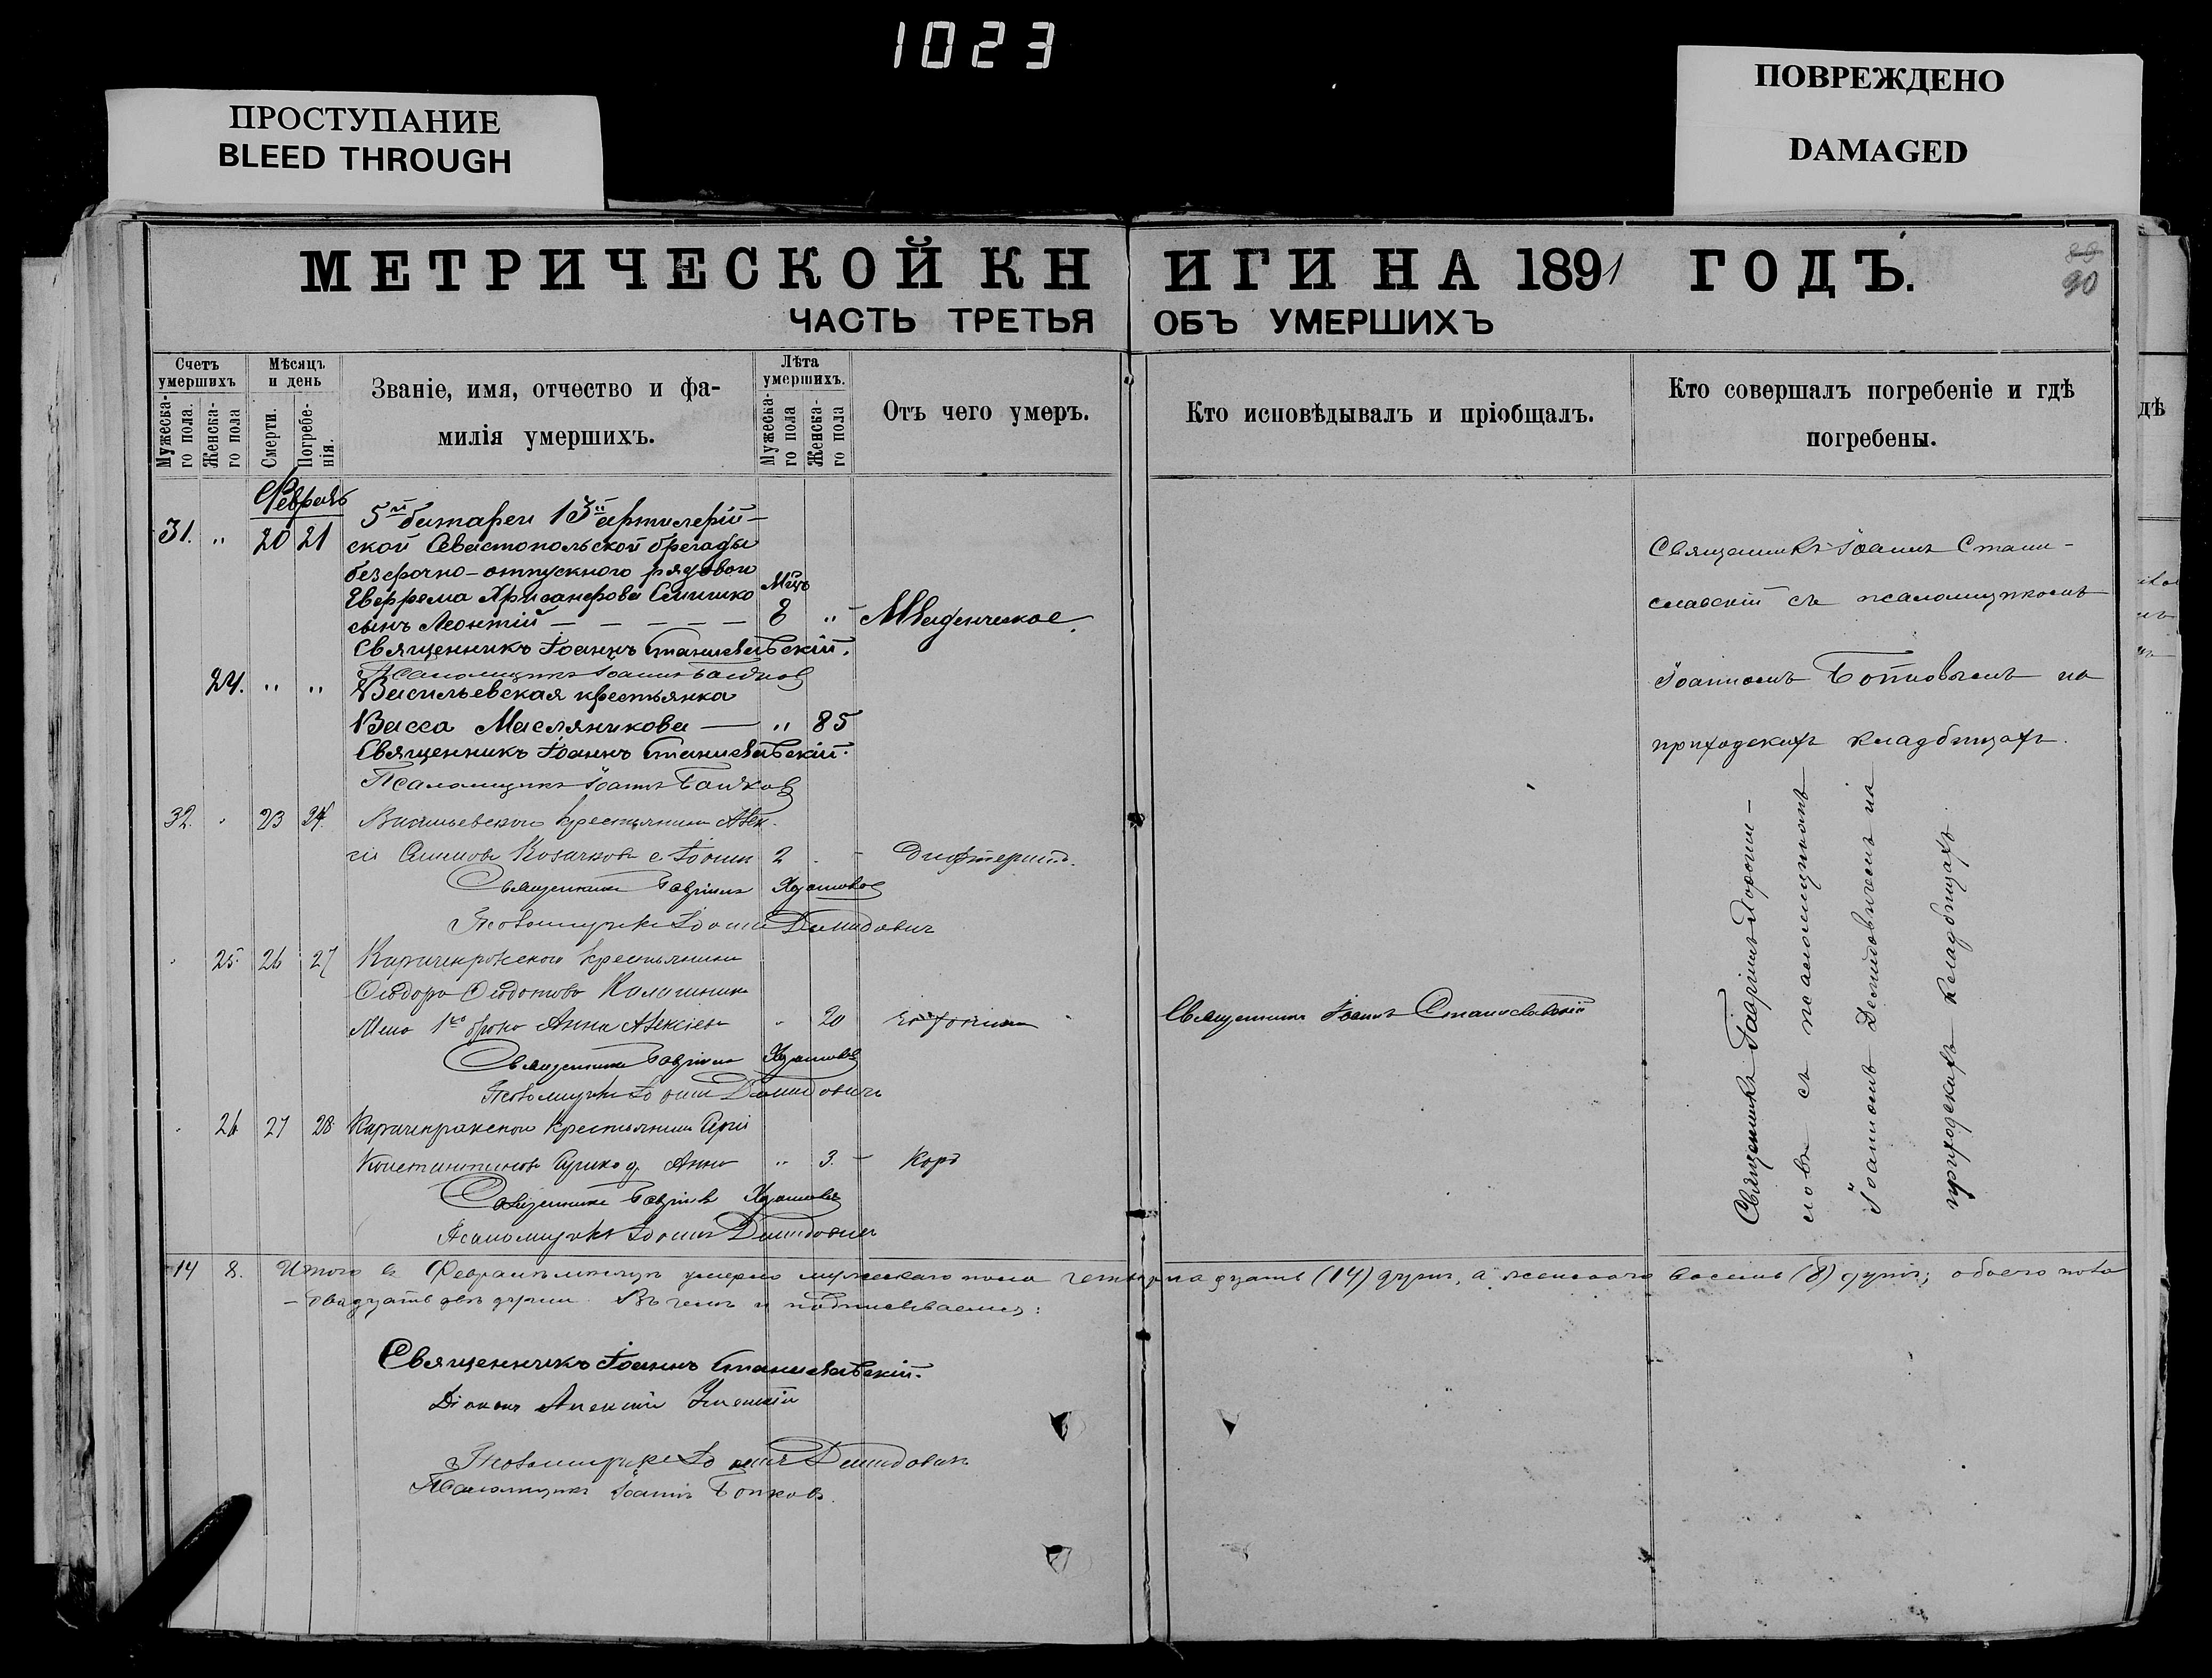 1023
ПРОСТУПАНИЕ
BLEED THROUGH
ПОВРЕЖДЕНО
DAMAGED
МЕТРИЧЕСКОЙ КНИГИ НА 1891 ГОДЪ.
90
ЧАСТЬ ТРЕТЬЯ ОБЪ УМЕРШИХЪ
Счетъ умершихъ
Мужеска-го пола.
Женска-го пола
Мѣсяцъ и день
Смерти.
Погребе-нія.
Званіе, имя, отчество и фа-
милія умершихъ.
Лѣта умершихъ.
Мужеска-го пола
Женска-го пола
Отъ чего умеръ.
Кто исповѣдывалъ и пріобщалъ.
Кто совершалъ погребеніе и гдѣ
погребены.
дѣ
Февраль
31. " 20 21 5й батареи 13й артилерій-
ской Севастопольской бригады
безсрочно-отпускного рядовои
Ефрема Хрисанфова
Мцъ
сынъ Леонтій — 8 " Младенческое.
Священникъ Іоаннъ Станиславскій.
Псаломщикъ Іоаннъ
24. " " Васильевская крестьянка
Васса Масляникова — " 85
Священникъ Іоаннъ Станиславскій.
Псаломщикъ Іоаннъ
Священникъ Іоаннъ Стани-
славскій съ псаломщикомъ
Іоанномъ на
приходскихъ кладбищахъ.
32. 23 24. Васильевскаго крестьянина Алек-
сія Козачкова с. Іоаннъ 2 - Дифтеритъ.
Священникъ Гавріилъ
Псаломщикъ Іоаннъ Демидовичъ
25. 26 27 крестьянина
Ѳеодора Ѳедотова
жена 1го брака Анна Алексіева 20
Священникъ Іоаннъ Станиславскій
Священникъ Гавріилъ
Псаломщикъ Іоаннъ Демидовичъ
26 27 28 крестьянина
Константинова д. Анна " 3. - Корь
Священникъ Гавріилъ
Псаломщикъ Іоаннъ Демидовичъ
Священникъ Гавріилъ
съ псаломщикомъ
Іоанномъ Демидовичемъ на
приходскихъ кладбищахъ.
14 8. Итого въ Февралѣ мѣсяцѣ умерло мужескаго пола четырнадцать (14) душъ, а женскаго восемь (8) душъ; обоего пола
— двадцать двѣ души. Въ чемъ и подписываемся:
Священникъ Іоаннъ Станиславскій.
Діаконъ Алексій
Псаломщикъ Іоаннъ Демидовичъ
Псаломщикъ Іоаннъ